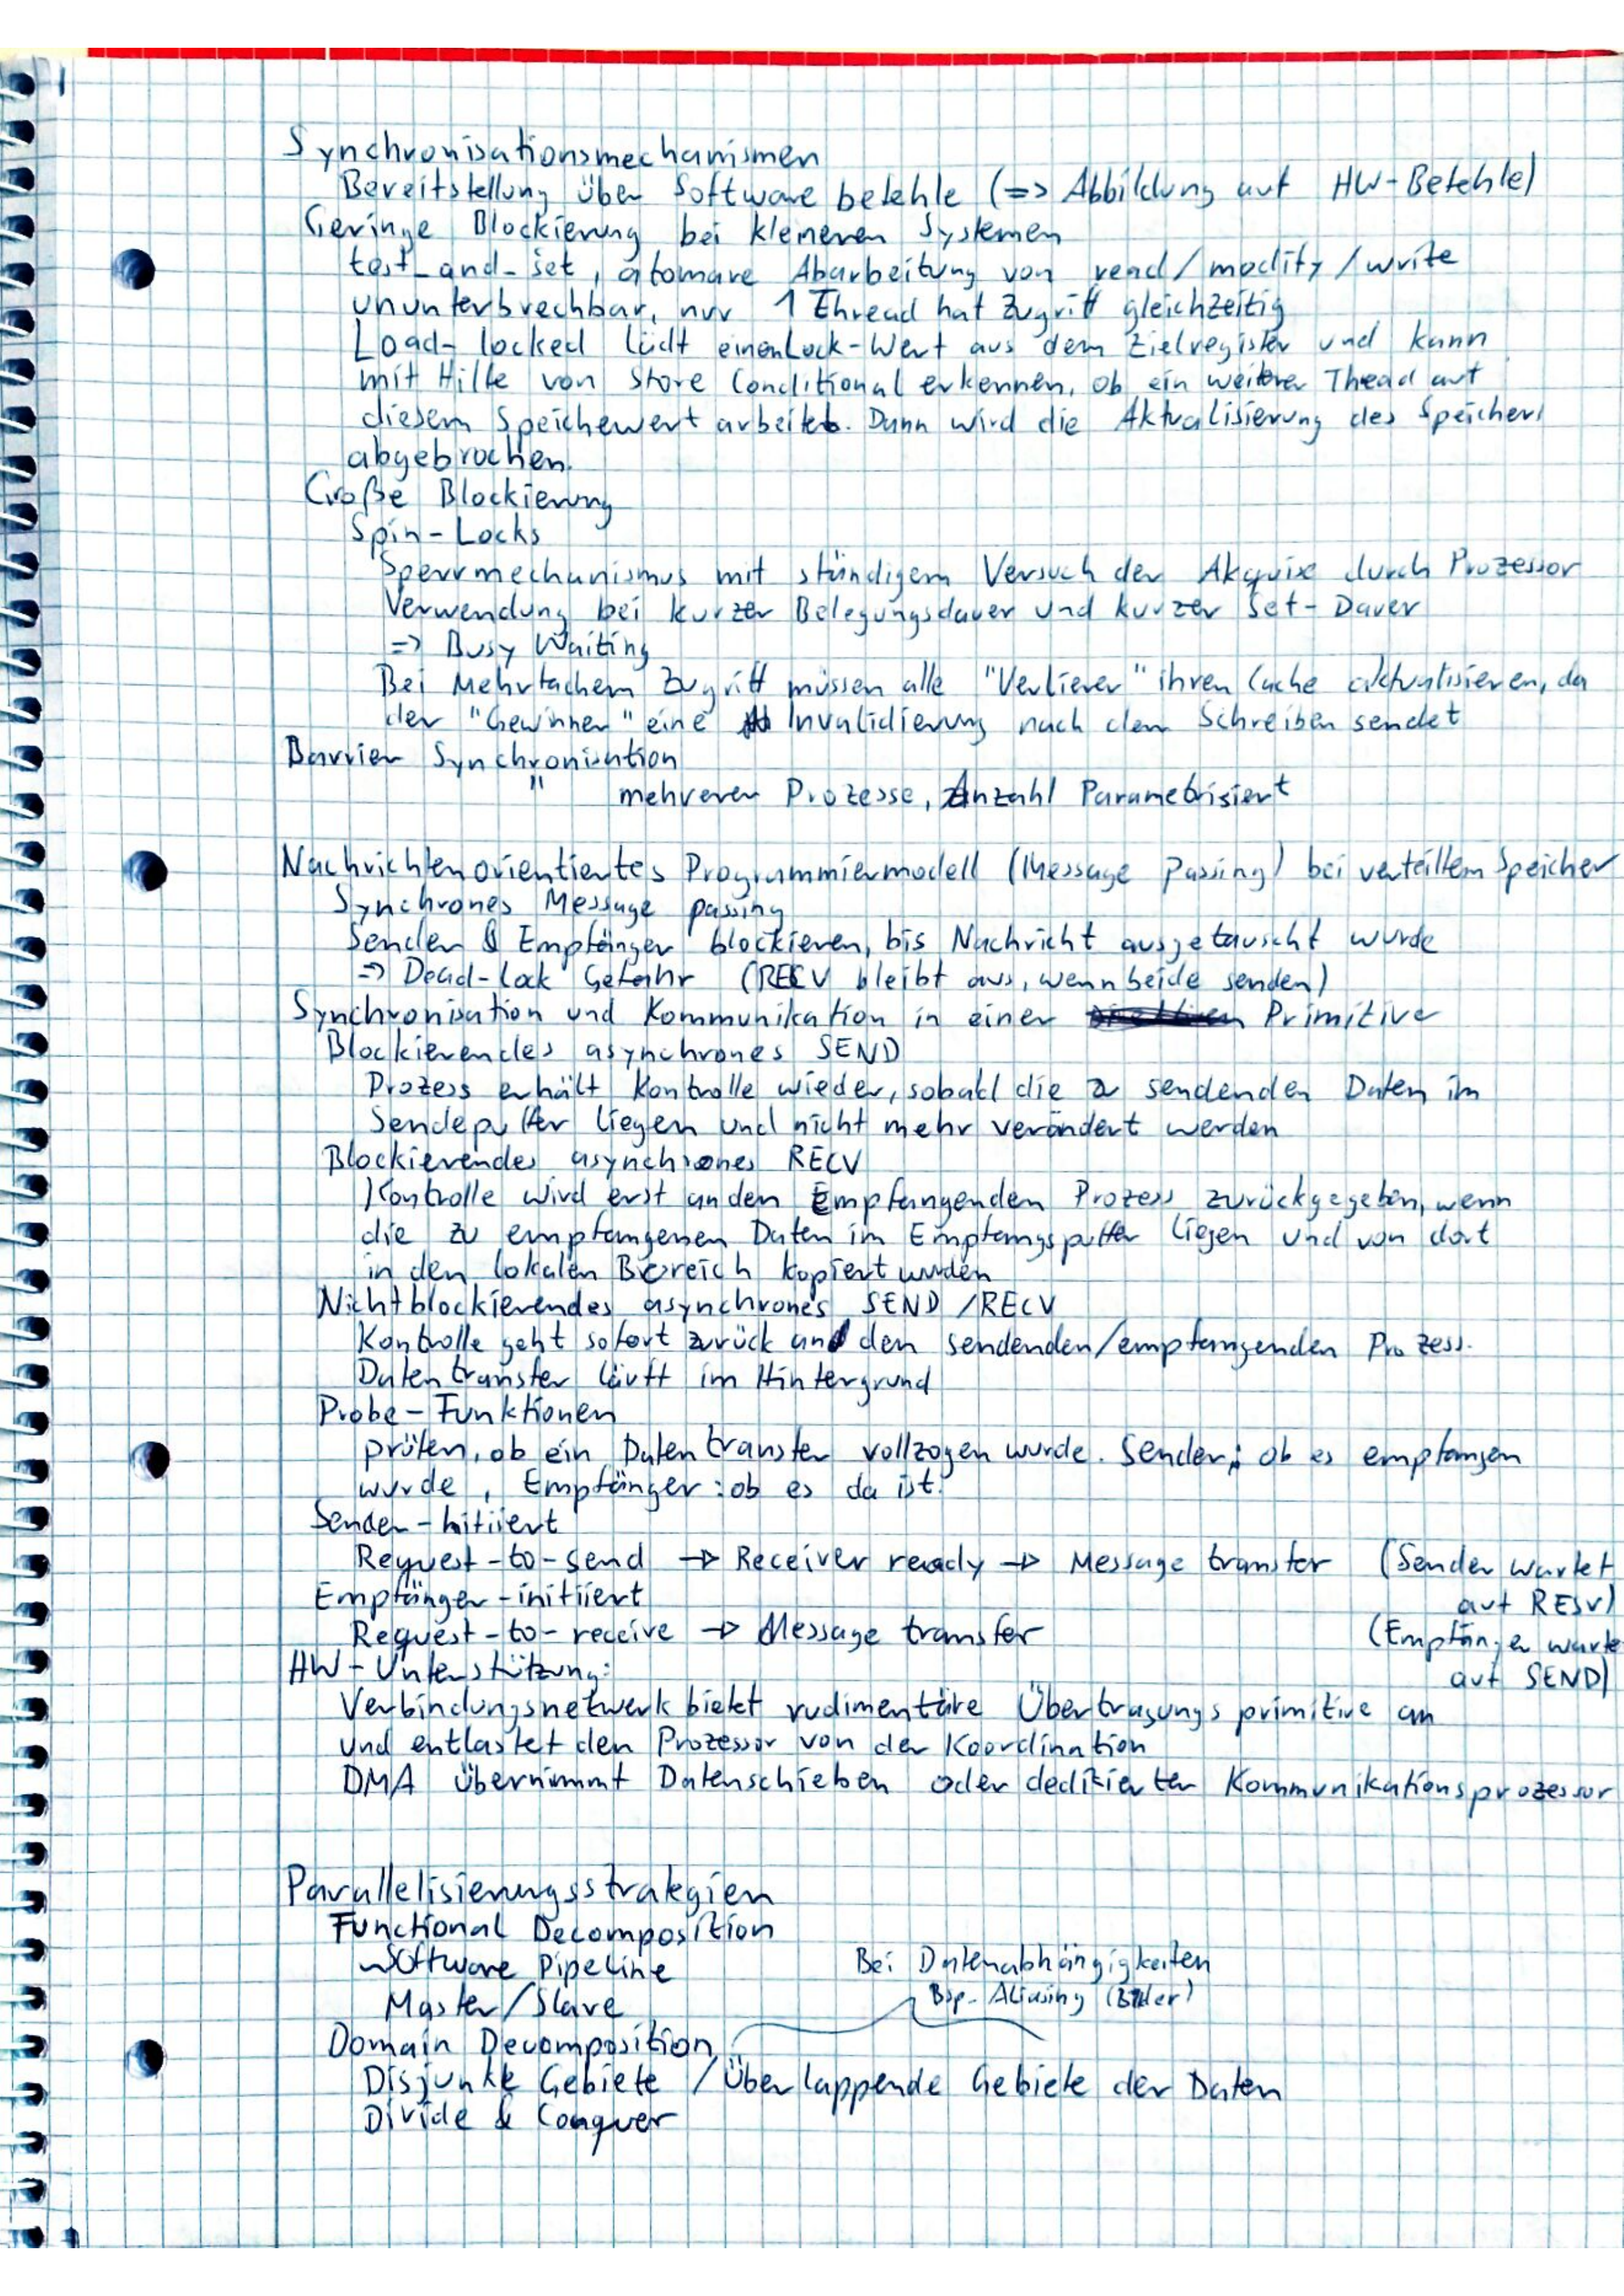 Synchronisationsmechanismen
Bereitstellung über Software befehle (=> Abbildung auf HW-Befehle)
Geringe Blockierung bei kleineren Systemen
test_and_set, atomare Abarbeitung von read/modify/write
ununterbrechbar, nur 1 Thread hat Zugriff gleichzeitig
Load-locked lädt einen Lock-Wert aus dem Zielregister und kann
mit Hilfe von Store Conditional erkennen, ob ein weiterer Thead auf
diesem Speichewert arbeitet. Dann wird die Aktualisierung des Speichers
abgebrochen.
Große Blockierung
Spin-Locks
Sperrmechanismus mit ständigem Versuch der Akquise durch Prozessor
Verwendung bei kurzer Belegungsdauer und kurzer Set-Dauer
=> Busy Waiting
Bei Mehrfachem Zugriff müssen alle "Verlierer" ihren Cache aktualisieren, da
der "Gewinner" eine Invalidierung nach dem Schreiben sendet
Barrier Synchronisation
" mehrerer Prozesse, Anzahl Parametrisiert
Nachrichtenorientiertes Programmiermodell (Message Passing) bei verteiltem Speicher
Synchrones Message passing
Sender & Empfänger blockieren, bis Nachricht ausgetauscht wurde
=> Dead-Lock Gefahr (RECV bleibt aus, wenn beide senden)
Synchronisation und Kommunikation in einer Primitive
Blockierendes asynchrones SEND
Prozess erhält Kontrolle wieder, sobald die zu sendenden Daten im
Sendepuffer liegen und nicht mehr verändert werden
Blockierendes asynchrones RECV
Kontrolle wird erst an den Empfangenden Prozess zurückgegeben, wenn
die zu empfangenen Daten im Empfangspuffer liegen und von dort
in den lokalen Bereich kopiert wurden
Nichtblockierendes asynchrones SEND/RECV
Kontrolle geht sofort zurück an den sendenden/empfangenden Prozess.
Datentransfer läuft im Hintergrund
Probe-Funktionen
prüfen, ob ein Datentransfer vollzogen wurde. Sender: ob es empfangen
wurde, Empfänger: ob es da ist.
Sender-Initiiert
Request-to-send -> Receiver ready -> Message transfer (Sender wartet
auf RESV)
Empfänger-initiiert
Request-to-receive -> Message transfer (Empfänger warte
auf SEND)
HW-Unterstützung:
Verbindungsnetwerk bietet rudimentäre Übertragungsprimitive an
und entlastet den Prozessor von der Koordination
DMA übernimmt Datenschieben oder dedizierter Kommunikationsprozessor
Parallelisierungsstrategien
Functional Decomposition
Software Pipeline
Bei Datenabhängigkeiten
Master/Slave
Bsp- Aliasing (Bilder)
Domain Decomposition
Disjunkte Gebiete / Überlappende Gebiete der Daten
Divide & Conquer